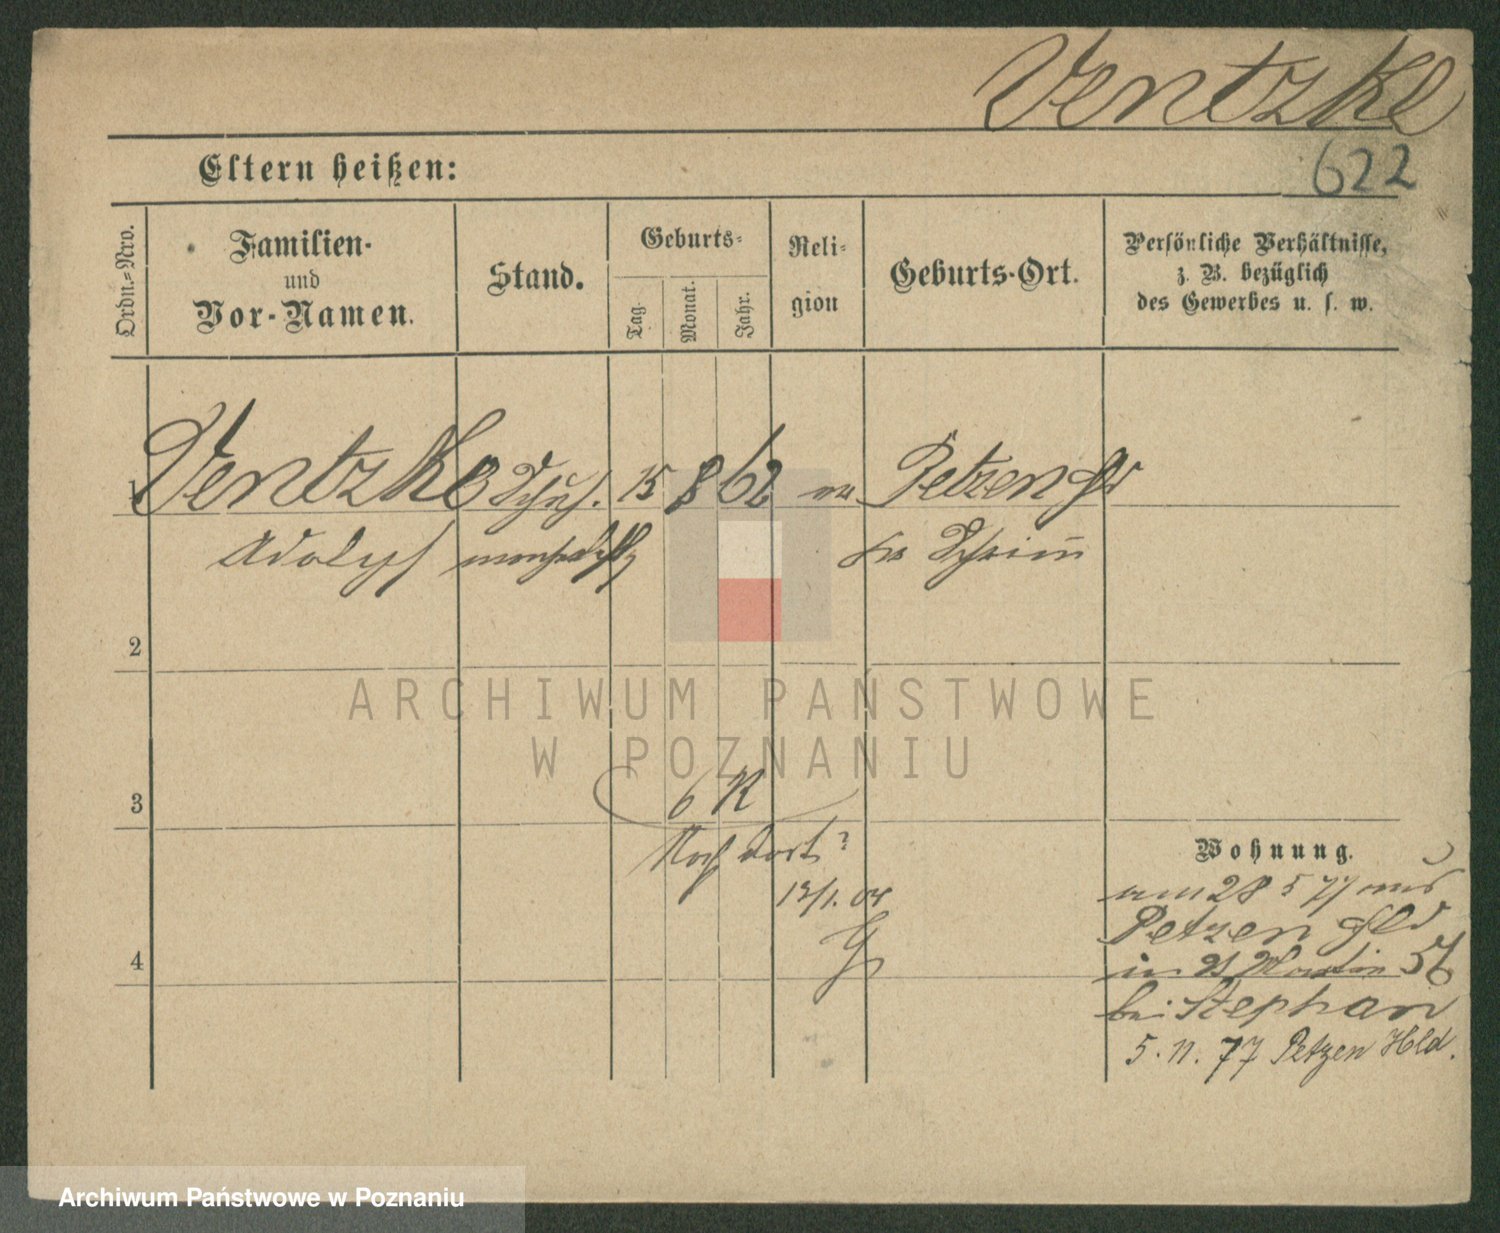 Ventzke
622
Eltern heißen:
Ordn.-Nro.
Familien-
und
Vor-Namen.
Stand.
Geburts-
Tag.
Monat.
Jahr.
Reli-
gion
Geburts-Ort.
Persönliche Verhältnisse,
z. B. bezüglich
des Gewerbes u. s. w.
1 Ventzke Schuh. 15 8 62 Petzen
Adolph Schrimm
2
ARCHIWUM PAŃSTWOWE
W POZNANIU
3
6 R
Noch dort?
13/1. 04
4
Wohnung.
am 28 5 77 aus
Petzen Hld
in St Martin 56
bei Stephan
5. 11. 77 Petzen Hld.
Archiwum Państwowe w Poznaniu